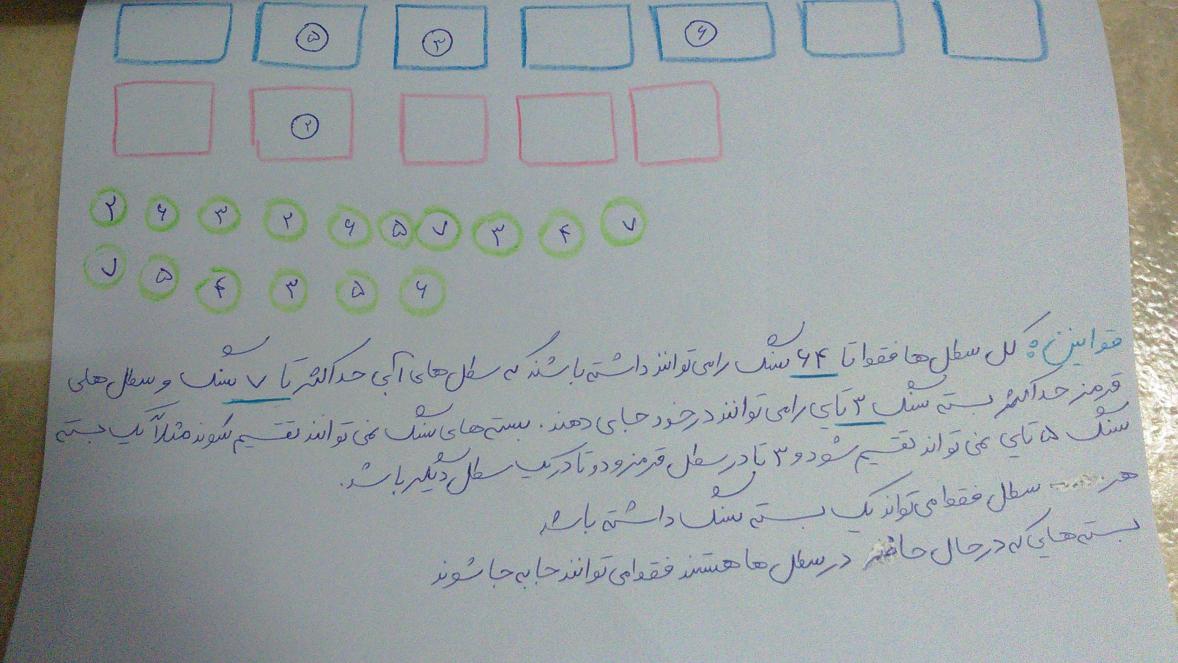 ۵ ۳ ۶
۲
۲ ۶ ۳ ۲ ۶ ۵ ۷ ۳ ۴ ۷
۷ ۵ ۴ ۳ ۵ ۶
قوانین: کل سطل‌ها فقط تا ۶۴ سنگ را می‌توانند داشته باشند که سطل‌های آبی حداکثر تا ۷ سنگ و سطل‌های
قرمز حداکثر بسته سنگ ۳ تایی را می‌توانند در خود جای دهند. بسته‌های سنگ نمی‌توانند تقسیم شوند مثلاً یک بسته
سنگ ۵ تایی نمی‌تواند تقسیم شود و ۳ تا در سطل قرمز و دو تا در یک سطل دیگر باشد.
هر سطل فقط می‌تواند یک بسته سنگ داشته باشد
بسته‌هایی که در حال حاضر در سطل‌ها هستند فقط می‌توانند جابه‌جا شوند